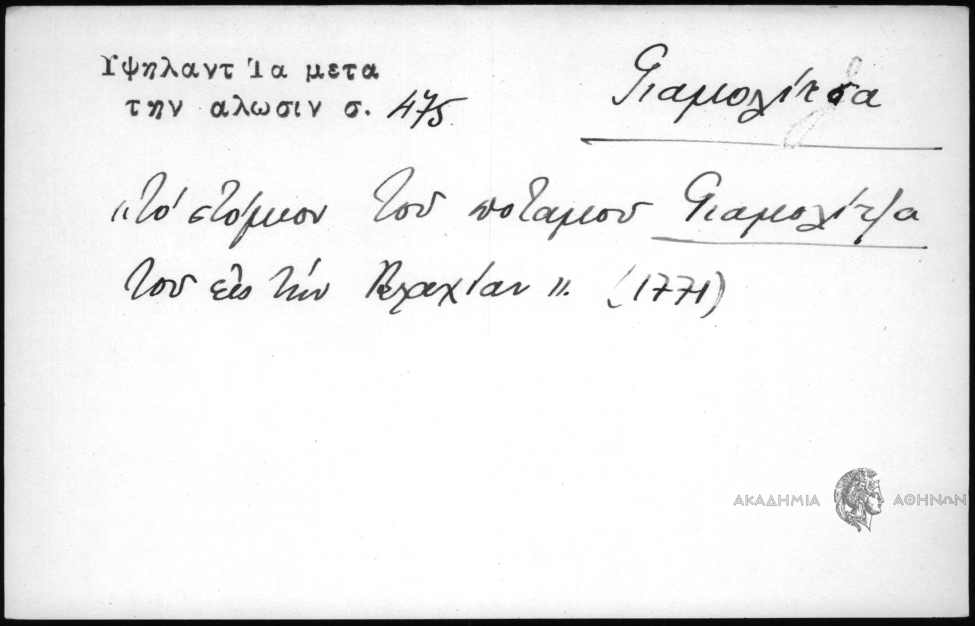 Υψηλαντ Ἰα μετα
την αλωσιν σ. 475
Γιαμολίτσα
"τό στόμιον του ποταμου Γιαμολίτζα
του εἰς τήν Βλαχίαν". (1771)
ΑΚΑΔΗΜΙΑ ΑΘΗΝΩΝ